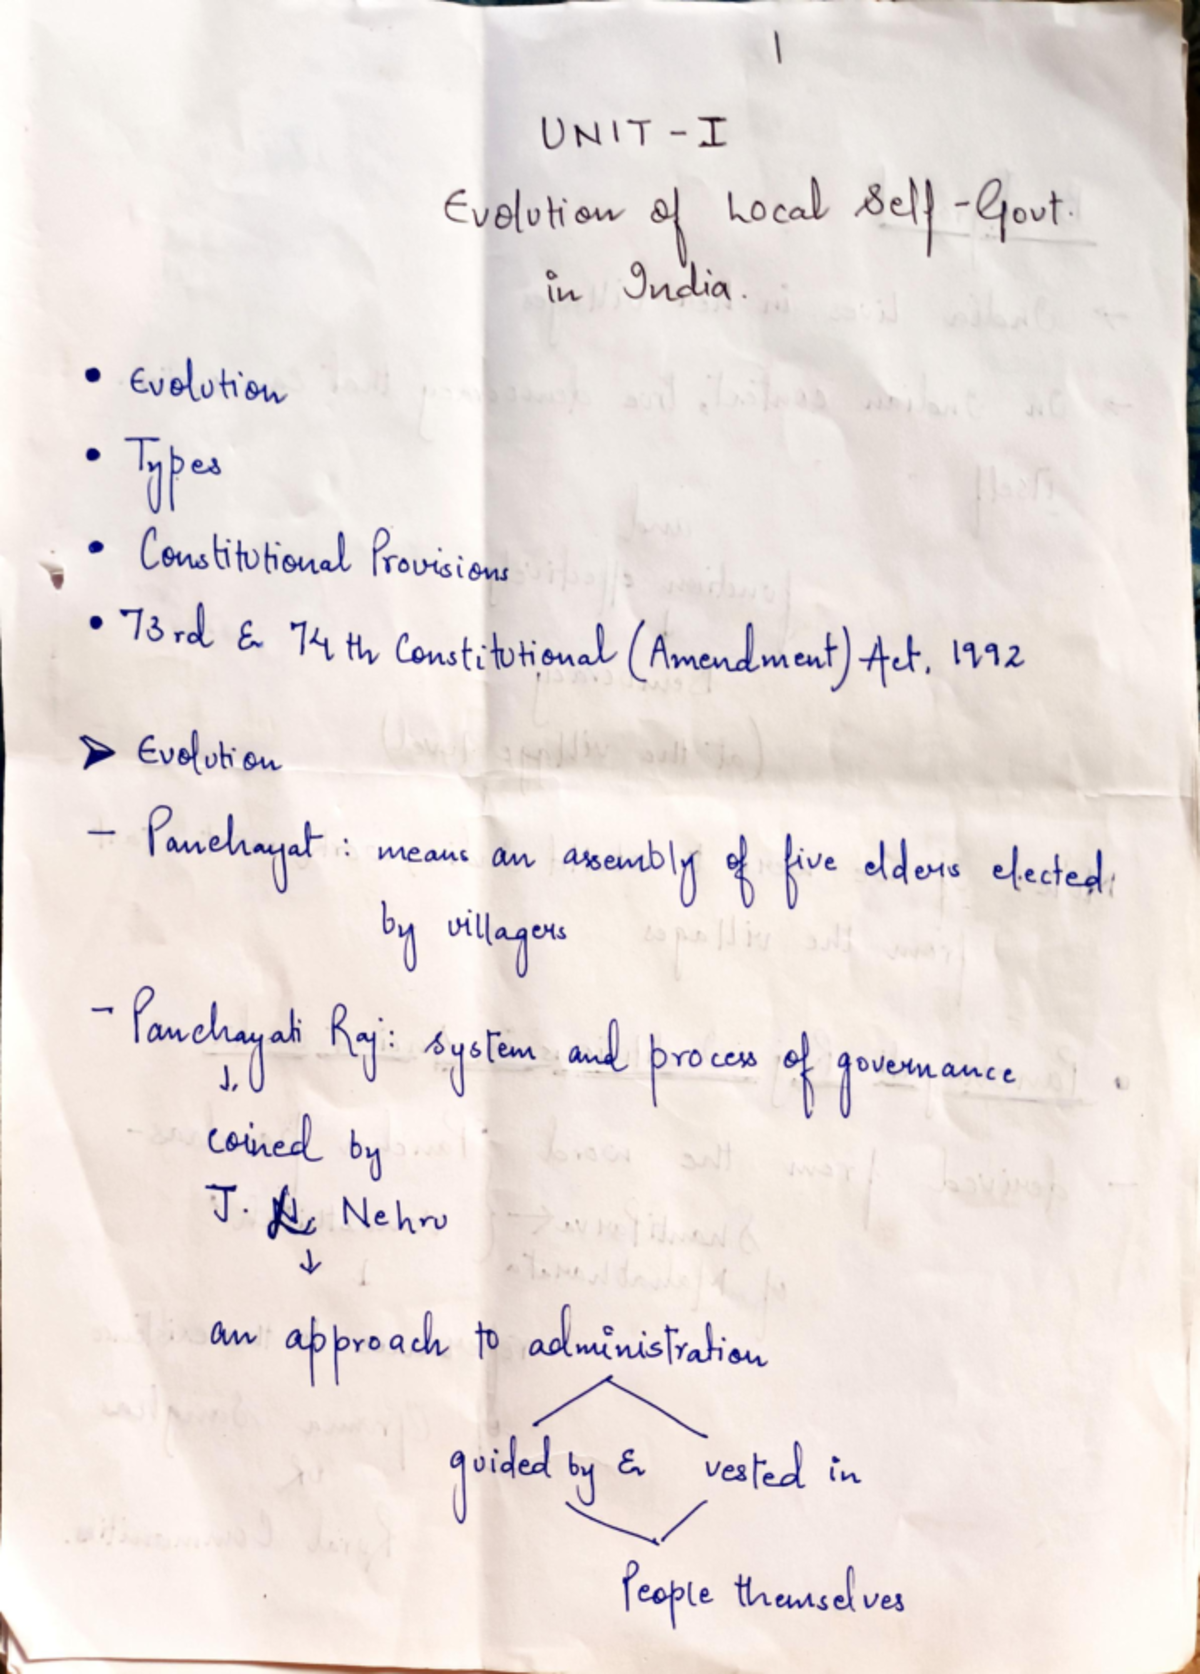 1
UNIT - I
Evolution of Local Self-Govt.
in India.
• Evolution
• Types
• Constitutional Provisions
• 73rd & 74th Constitutional (Amendment) Act, 1992
➤ Evolution
- Panchayat : means an assembly of five elders elected
by villagers
- Panchayati Raj: system and process of governance
↓
coined by
J. L. Nehru
↓
an approach to administration
guided by & vested in
People themselves